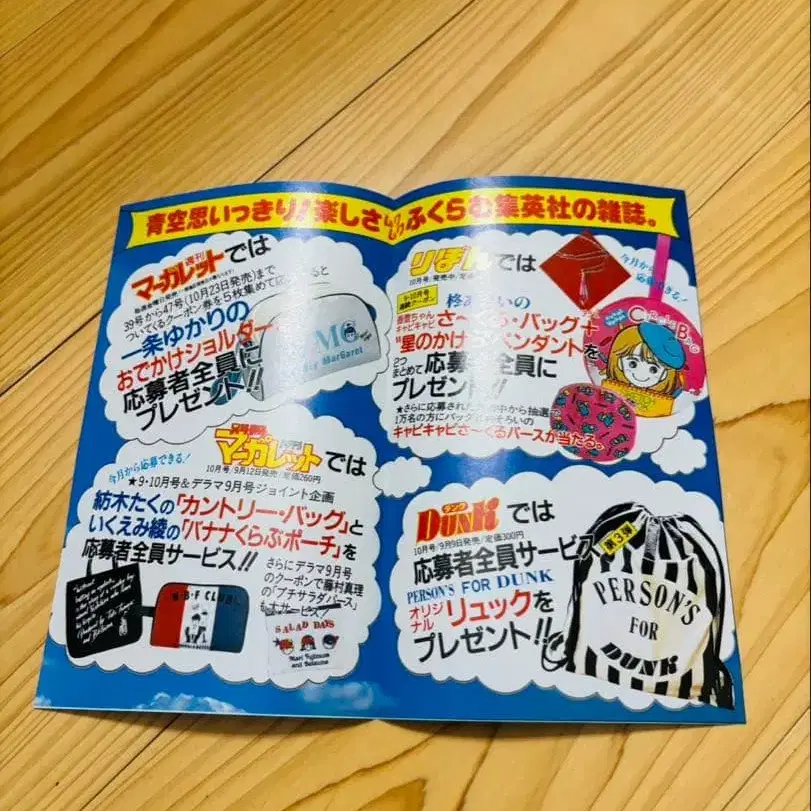 青空思いっきり!楽しさふくらむ集英社の雑誌。
週刊
マーガレットでは
39号から47号(10月23日発売)まで
ついてくるクーポン券を5枚集めて
一条ゆかりの
おでかけショルダー
応募者全員に
プレゼント!!
MC
by MarGaret
今月から応募できる!
マーガレットでは
10月号/9月12日発売/定価260円
★9・10月号&デラマ9月号ジョイント企画
紡木たくの「カントリー・バッグ」と
いくえみ綾の「バナナくらぶポーチ」を
応募者全員サービス!!
さらにデラマ9月号
のクーポンで藤村真理
の「プチサラダパース」
も大サービス!
SALAD DAYS
Mari Fujimura
and Deluxe
りぼんでは
10月号/発売中/定価
今月から
応募できる!
9・10月号
連続クーポン
さ〜くる・バッグ+
"星のかけらペンダントを
2つ
まとめて応募者全員に
プレゼント!!
★さらに応募された方の中から抽選で
1万名の方にバッグと
キャピキャピさーくるパースが当たる。
ダンク
DUNKでは
10月号/9月9日発売/定価300円
応募者全員サービス
第3弾
PERSON'S FOR DUNK
オリジナルリュックを
プレゼント!!
PERSON'S
FOR
DUNK